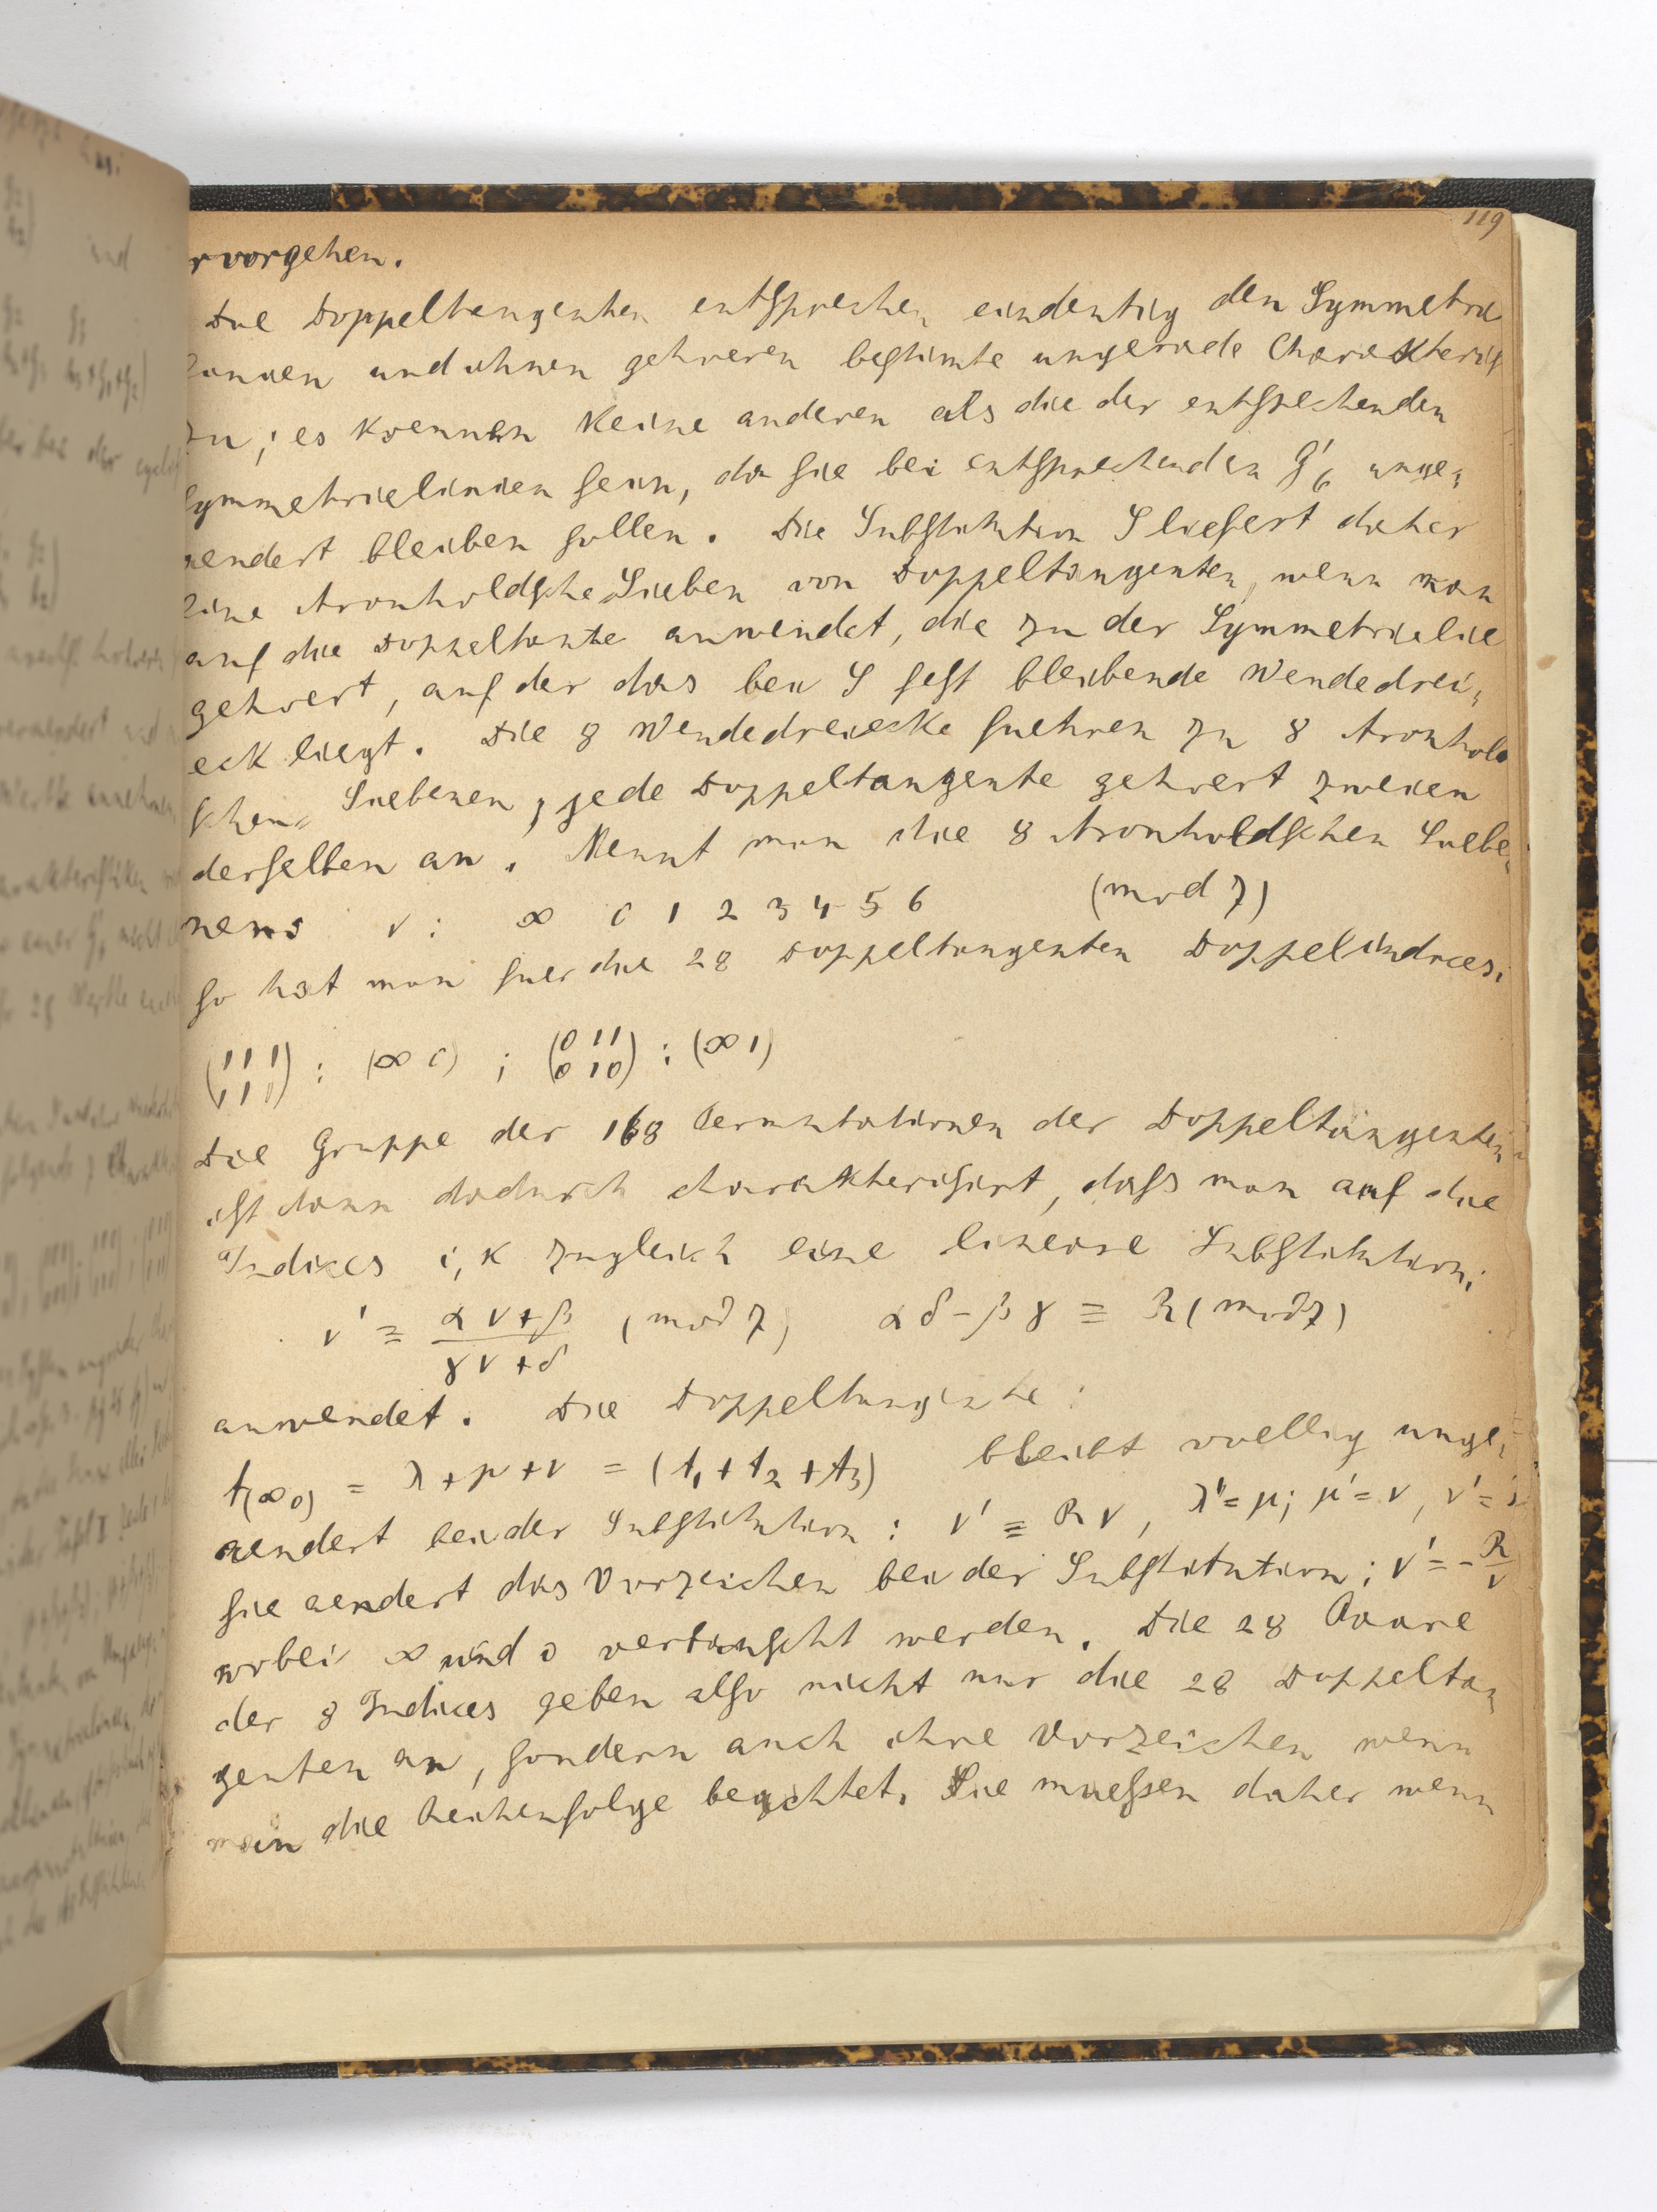 119
rvorgehen.
Die Doppeltangenten entsprechen eindeutig den Symmetrie
linien und ihnen gehoeren bestimte ungerade Charakteris
zu; es koennen keine anderen als die der entsprechenden
Symmetrielinien sein, da sie bei entsprechenden G'6 unge=
aendert bleiben sollen. Die Substitution S liefert daher
eine Aronholdsche Sieben von Doppeltangenten, wenn man
auf die Doppeltante anwendet, die zu der Symmetrielie
gehoert, auf der das bei S fest bleibende Wendedrei=
eck liegt. Die 8 Wendedreiecke fuehren zu 8 Aronhold
schen Siebenen, jede Doppeltangente gehoert zweien
derselben an. Nennt man die 8 Aronholdschen Siebe=
nens ν: ∞ 0 1 2 3 4 5 6 (mod 7)
so hat man fuer die 28 Doppeltangenten Doppelindices:
(111 / 111) : (∞ 0) ; (011 / 010) : (∞ 1)
Die Gruppe der 168 Permutationen der Doppeltangenten
ist dann dadurch charakterisirt, dass man auf die
Indices i, k zugleich eine lineare Substitution:
ν' ≡ (αν+β)/(γν+δ) (mod 7) αδ-βγ ≡ R (mod 7)
anwendet. Die Doppeltangente:
t(∞0) = λ+μ+ν = (t1+t2+t3) bleibt voellig unge=
aendert bei der Substitution: ν' ≡ Rν, λ'=μ; μ'=ν, ν'=λ
sie aendert das Vorzeichen bei der Substitution; ν'=-R/ν
wobei ∞ und 0 vertauscht werden. Die 28 Paare
der 8 Indices geben also nicht nur die 28 Doppeltan
genten an, sondern auch ihre Vorzeichen wenn
man die Reihenfolge beachtet. Sie muessen daher wenn